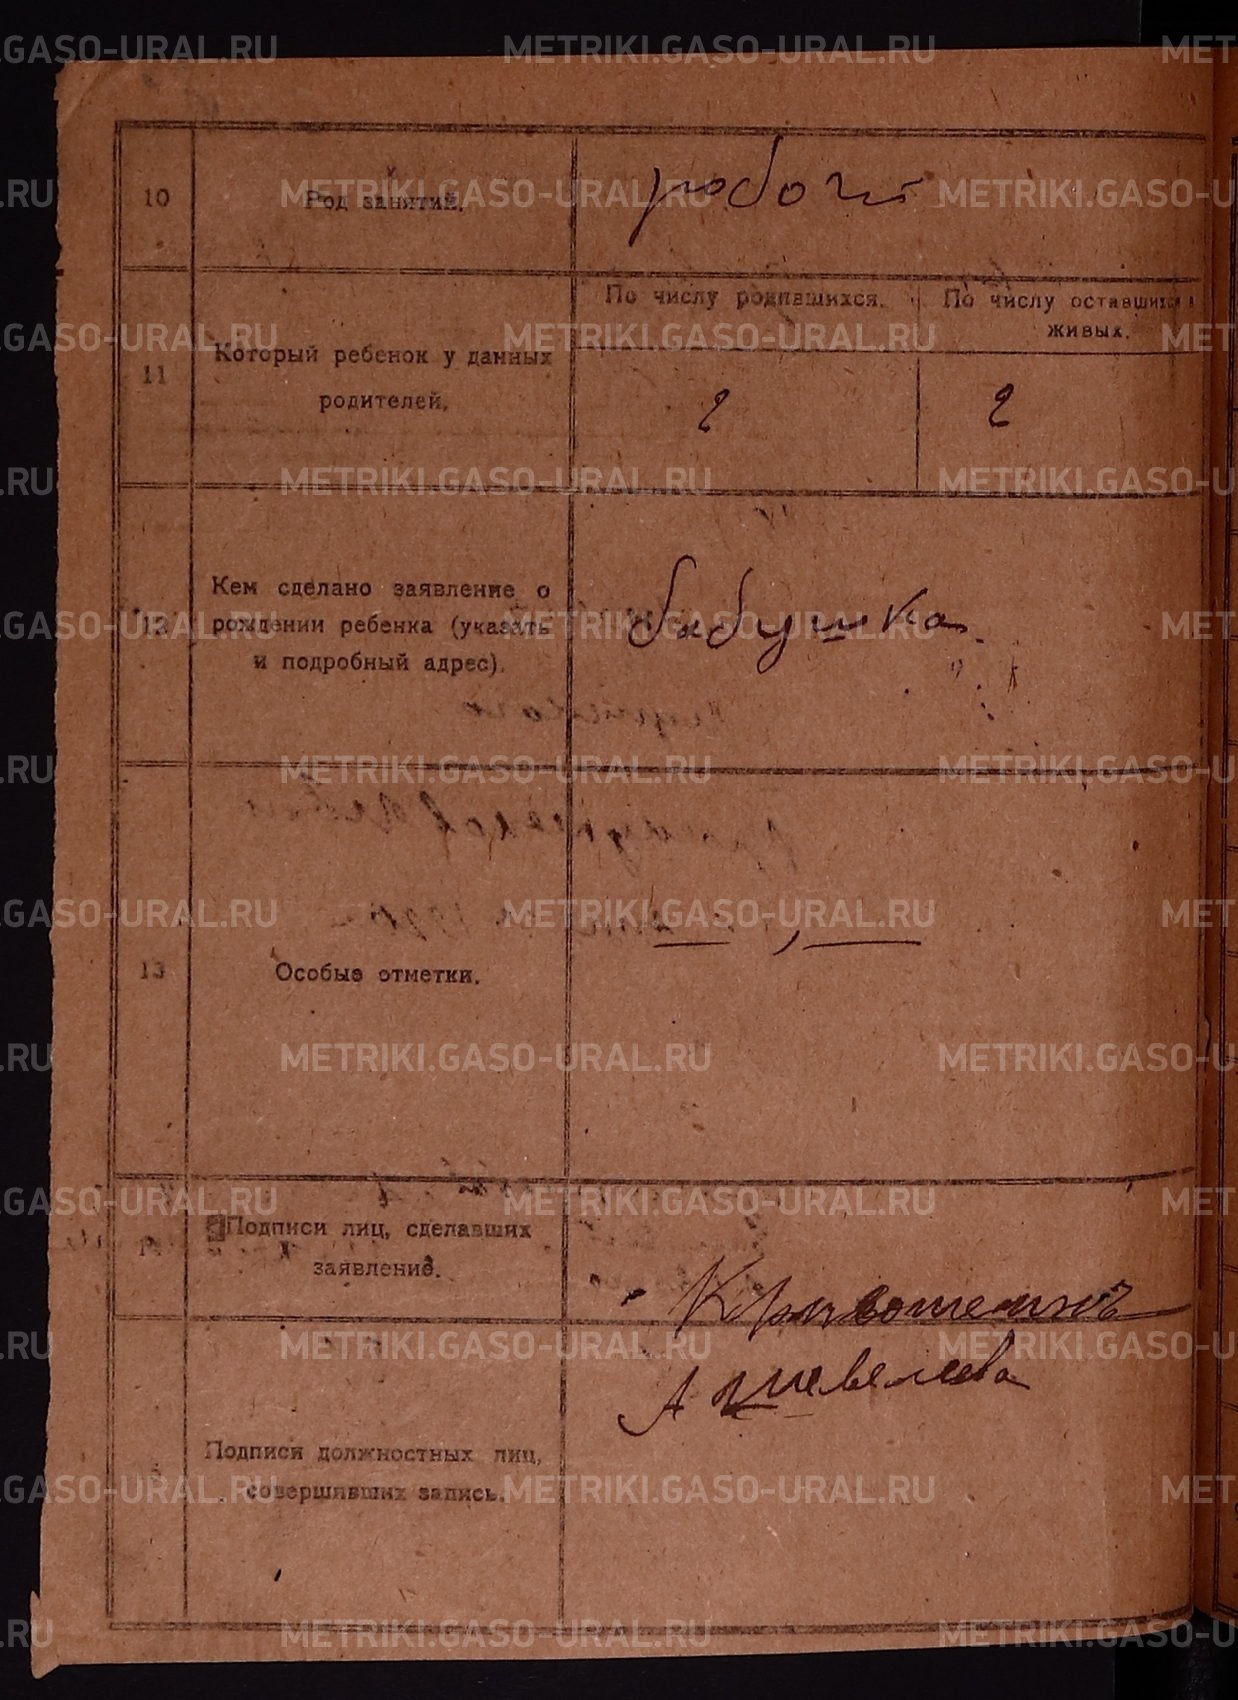 METRIKI.GASO-URAL.RU
10
Род занятий.
рабочий
11
Который ребенок у данных
родителей.
По числу родившихся.
По числу оставшихся
живых.
2
2
12
Кем сделано заявление о
рождении ребенка (указать
и подробный адрес).
бабушка
13
Особые отметки.
— , —
14
Подписи лиц, сделавших
заявление.
Подписи должностных лиц,
совершивших запись.
А Шевелева